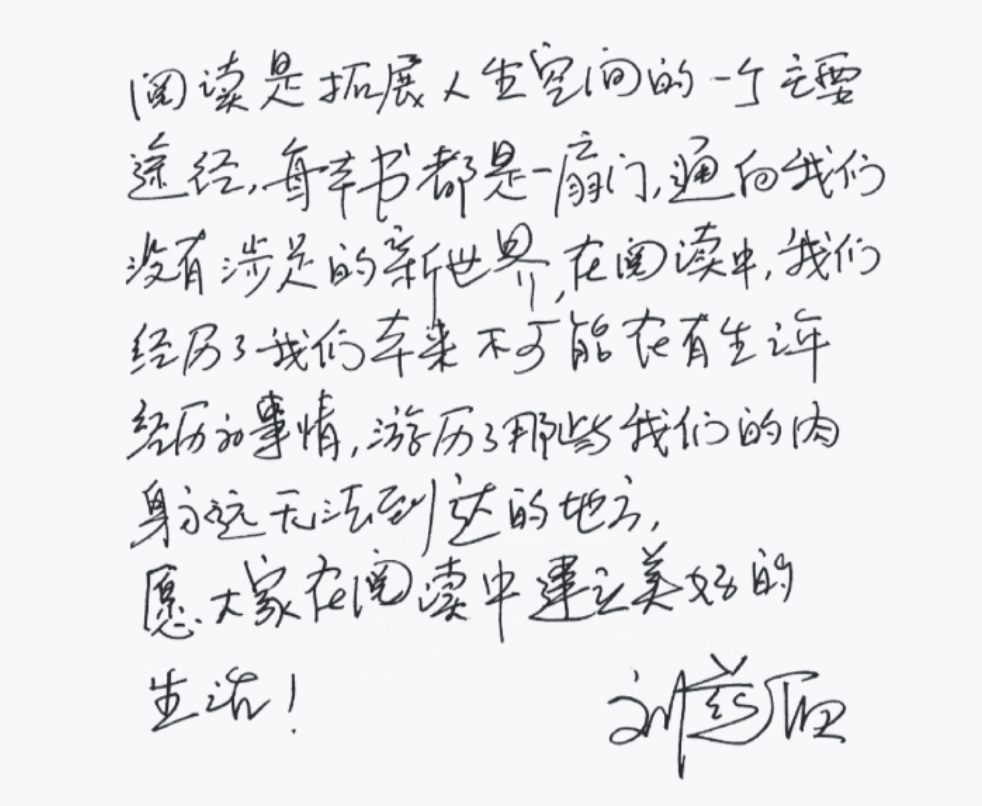 阅读是拓展人生空间的一个主要
途经,每本书都是一扇门,通向我们
没有涉足的新世界,在阅读中,我们
经历了我们本来不可能在有生之年
经历的事情,游历了那些我们的肉
身永远无法到达的地方,
愿大家在阅读中建立美好的
生活!
刘